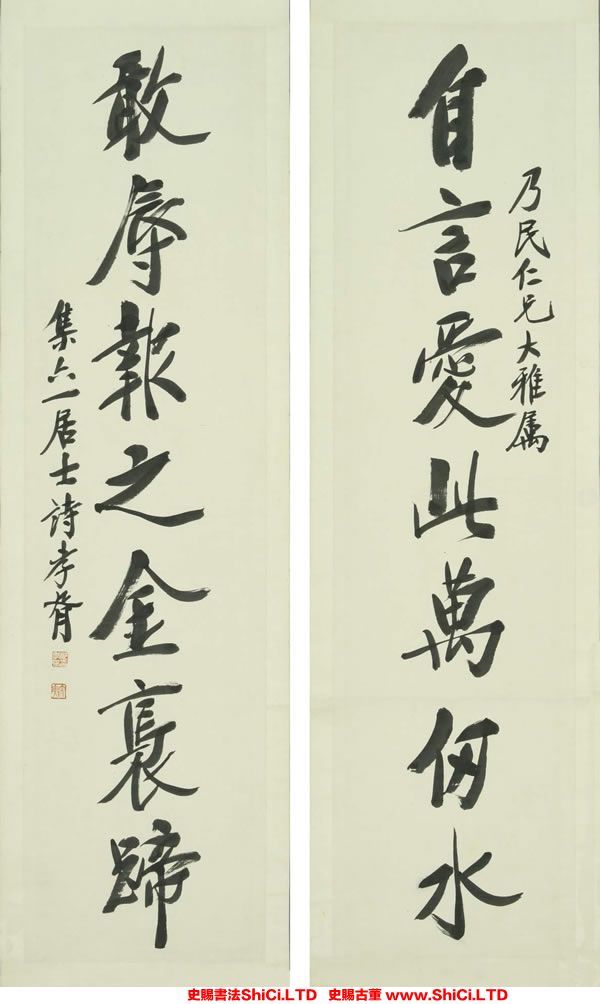 乃民仁兄大雅属
自言愛此萬仞水
敢辱報之金裹蹄
集六一居士詩孝胥
史賜書法ShiCi.LTD 史賜古董 www.ShiCi.LTD